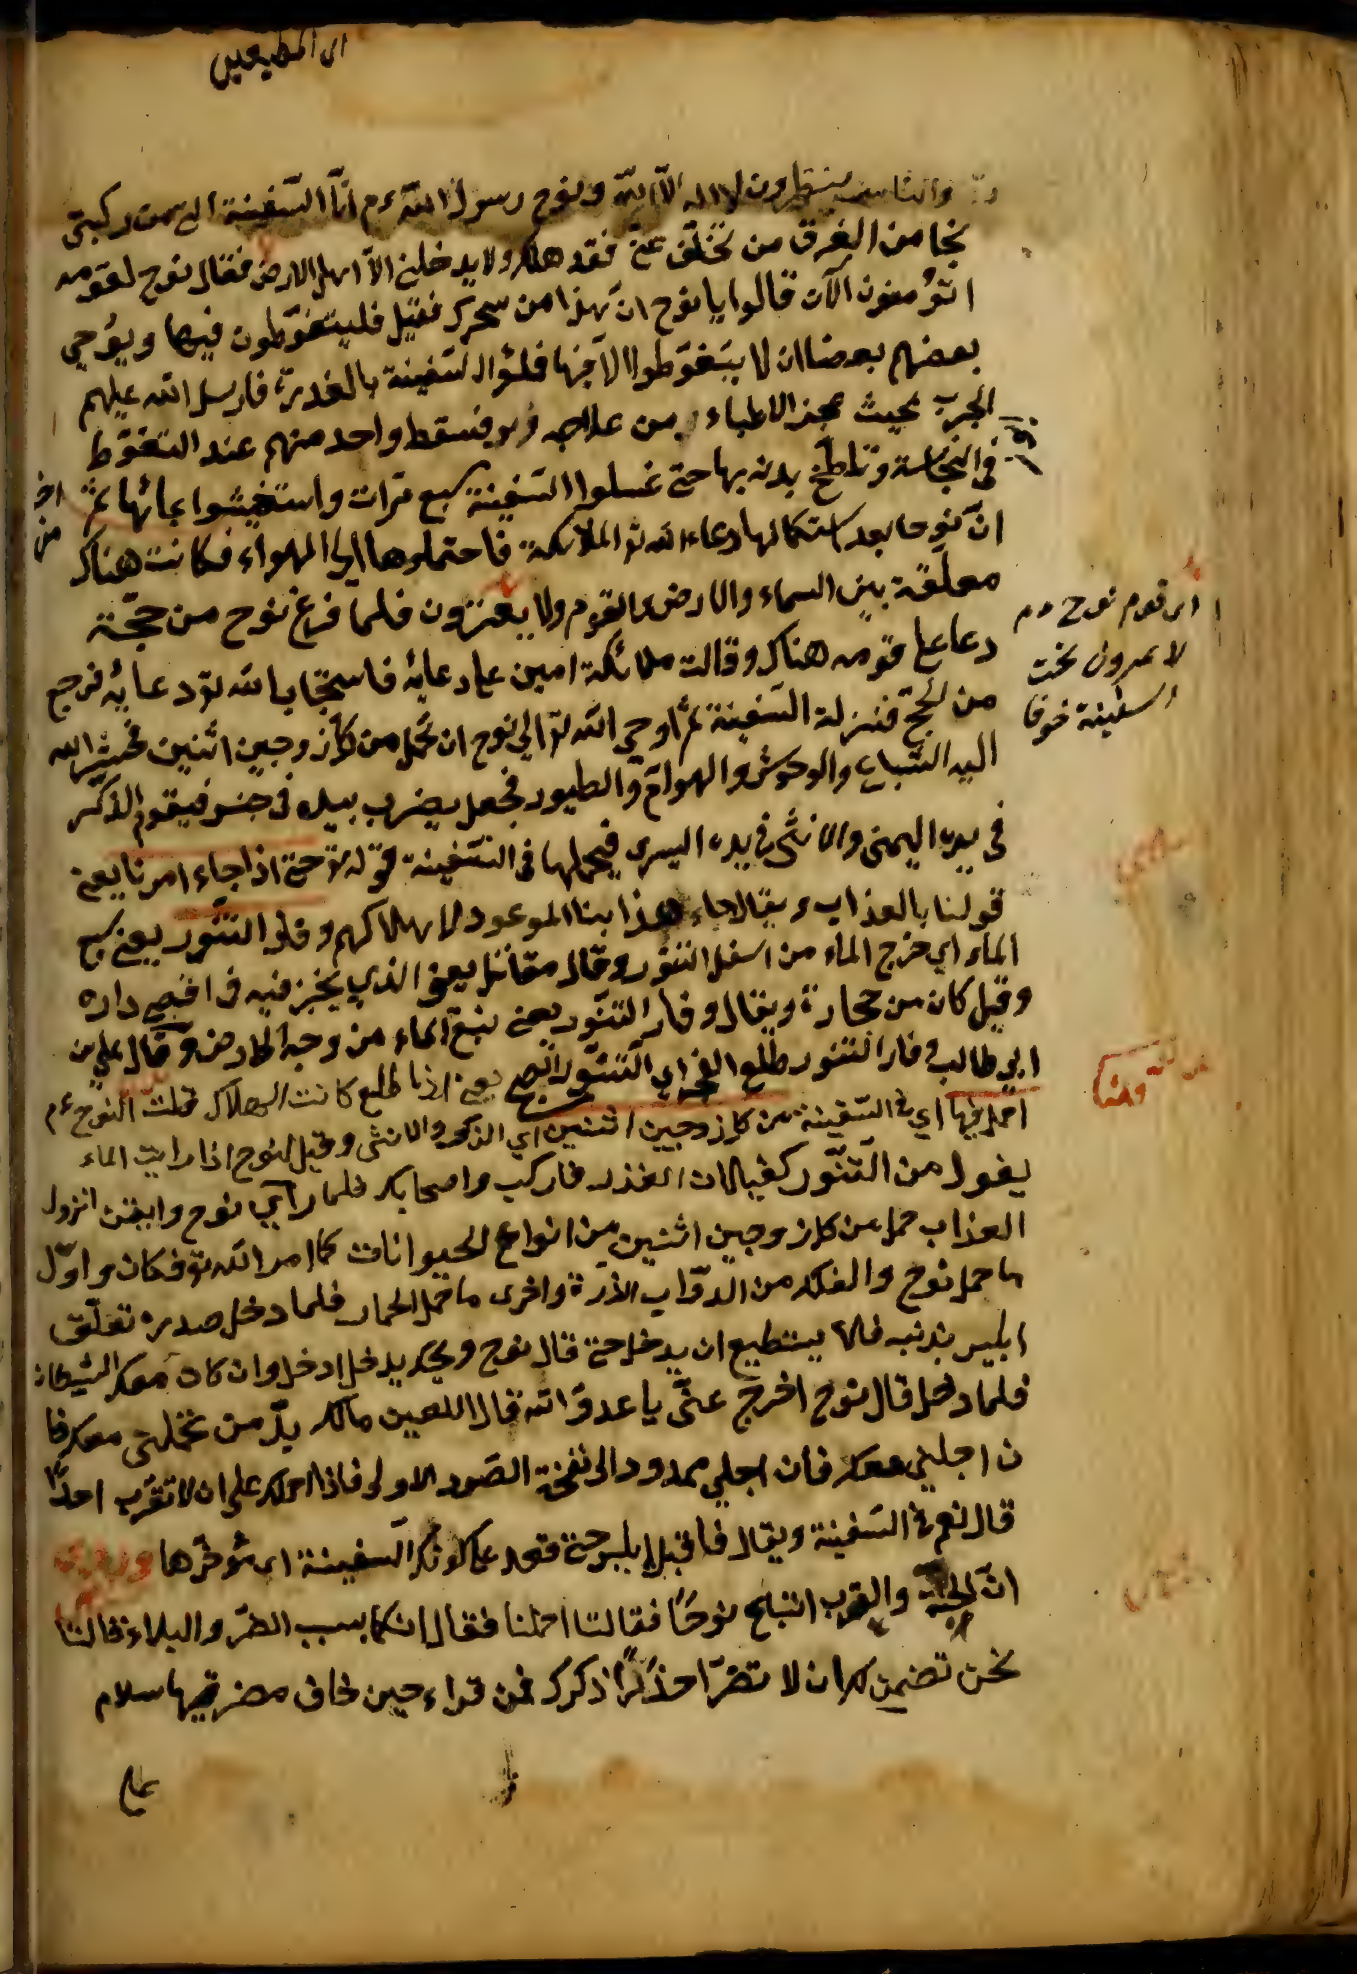 اى المطيعين
والناس ينتظرون لا اله الا الله ونوح رسول الله ءم انّا السّفينة التي من ركبني
نجا من الغرق من تخلّف عنّي فقد هلك ولا يدخلني الا اهل الارض فقال نوح لقومه
اتؤمنون الآن قالوا يا نوح انّ هذا من سحرك فقيل فليتغوّطون فيها ويوحي
بعضهم بعضا ان لا يتغوّطوا الا فيها فملؤا السّفينة بالغدرة فارسل الله عليهم
الجرب بحيث عجز الاطباء من علاجه فسقط واحد منهم عند التغوّط
في النجاسة وتلطّخ بدنه بها حتى غسلوا السّفينة سبع مرّات واستغشوا بمائها ثمّ
انّ نوحا بعد استكمالها دعاء الله تع الملائكة فاحتملوها الى الهواء فكانت هناك
معلّقة بين السماء والارض والقوم ولا يعتزون فلمّا فرغ نوح من حجّته
دعا على قومه هناك وقالت ملائكة امين على دعائه فاستجاب الله تع دعائه فرجع
من الحج فنزلت السّفينة ثمّ اوحى الله تع الى نوح ان تحمل من كل زوجين اثنين فحشر الله
اليه السّباع والوحوش والهوامّ والطيور فجعل يضرب بيده في جنس فيقوم الذكر
في يده اليمنى والانثى في يده اليسرى فيحملها في السّفينة قوله تع حتى اذا جاء امرنا يعني
قولنا بالعذاب ويقال جاء هذا بنا الموعود لاهلاكهم وفار التنّور يعني نبع
الماء اي خرج الماء من اسفل التنّور وقال مقاتل يعني الذي يخبز فيه في اقصى داره
وقيل كان من حجارة ويقال وفار التنّور يعني نبع الماء من وجه الارض وقال علي بن
ابي طالب فار التنّور طلع الفجر اي التنّور الصبح يعني اذا طلع كانت الهلاك قلت لنوح ءم
احمل فيها اي في السّفينة من كل زوجين اثنين اي الذكر والانثى وقيل لنوح اذا رايت الماء
يفور من التنّور كغليان القدر فاركب واصحابك فلما رأى نوح وايقن انزول
العذاب حمل من كل زوجين اثنين من انواع الحيوانات كما امر الله تع فكان اوّل
ما حمل نوح والفلك من الدوّاب الذرة واخرى ما حمل الحمار فلما دخل صدره تعلّق
ابليس بذنبه فلا يستطيع ان يدخل حتى قال نوح ويحك يدخل ادخل وان كان معك الشيطان
فلما دخل قال نوح اخرج عنّي يا عدوّ الله قال اللعين مالك بدّ من تحملني معك فا
ن اجليني معك فان اجلي ممدود الى نفخة الصّور الاولى فاذا احملك على ان لا تقرّب احدًا
قال نعم في السّفينة ويقال فاقبل ابليس حتى قعد على كوثر السّفينة اى مؤخرها
انّ الحيّة والعقرب اتيا نوحًا فقالتا احملنا فقال انكما سبب الضرّ والبلاء فقالتا
نحن نضمن لك ان لا نضرّ احدًا ذكرك فمن قراء حين خاف مضرتهما سلام
على
اى قوم نوح ءم
لا يمرون تحت
السفينة خوفا